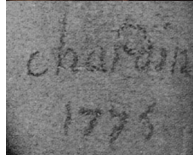 chardin
1775